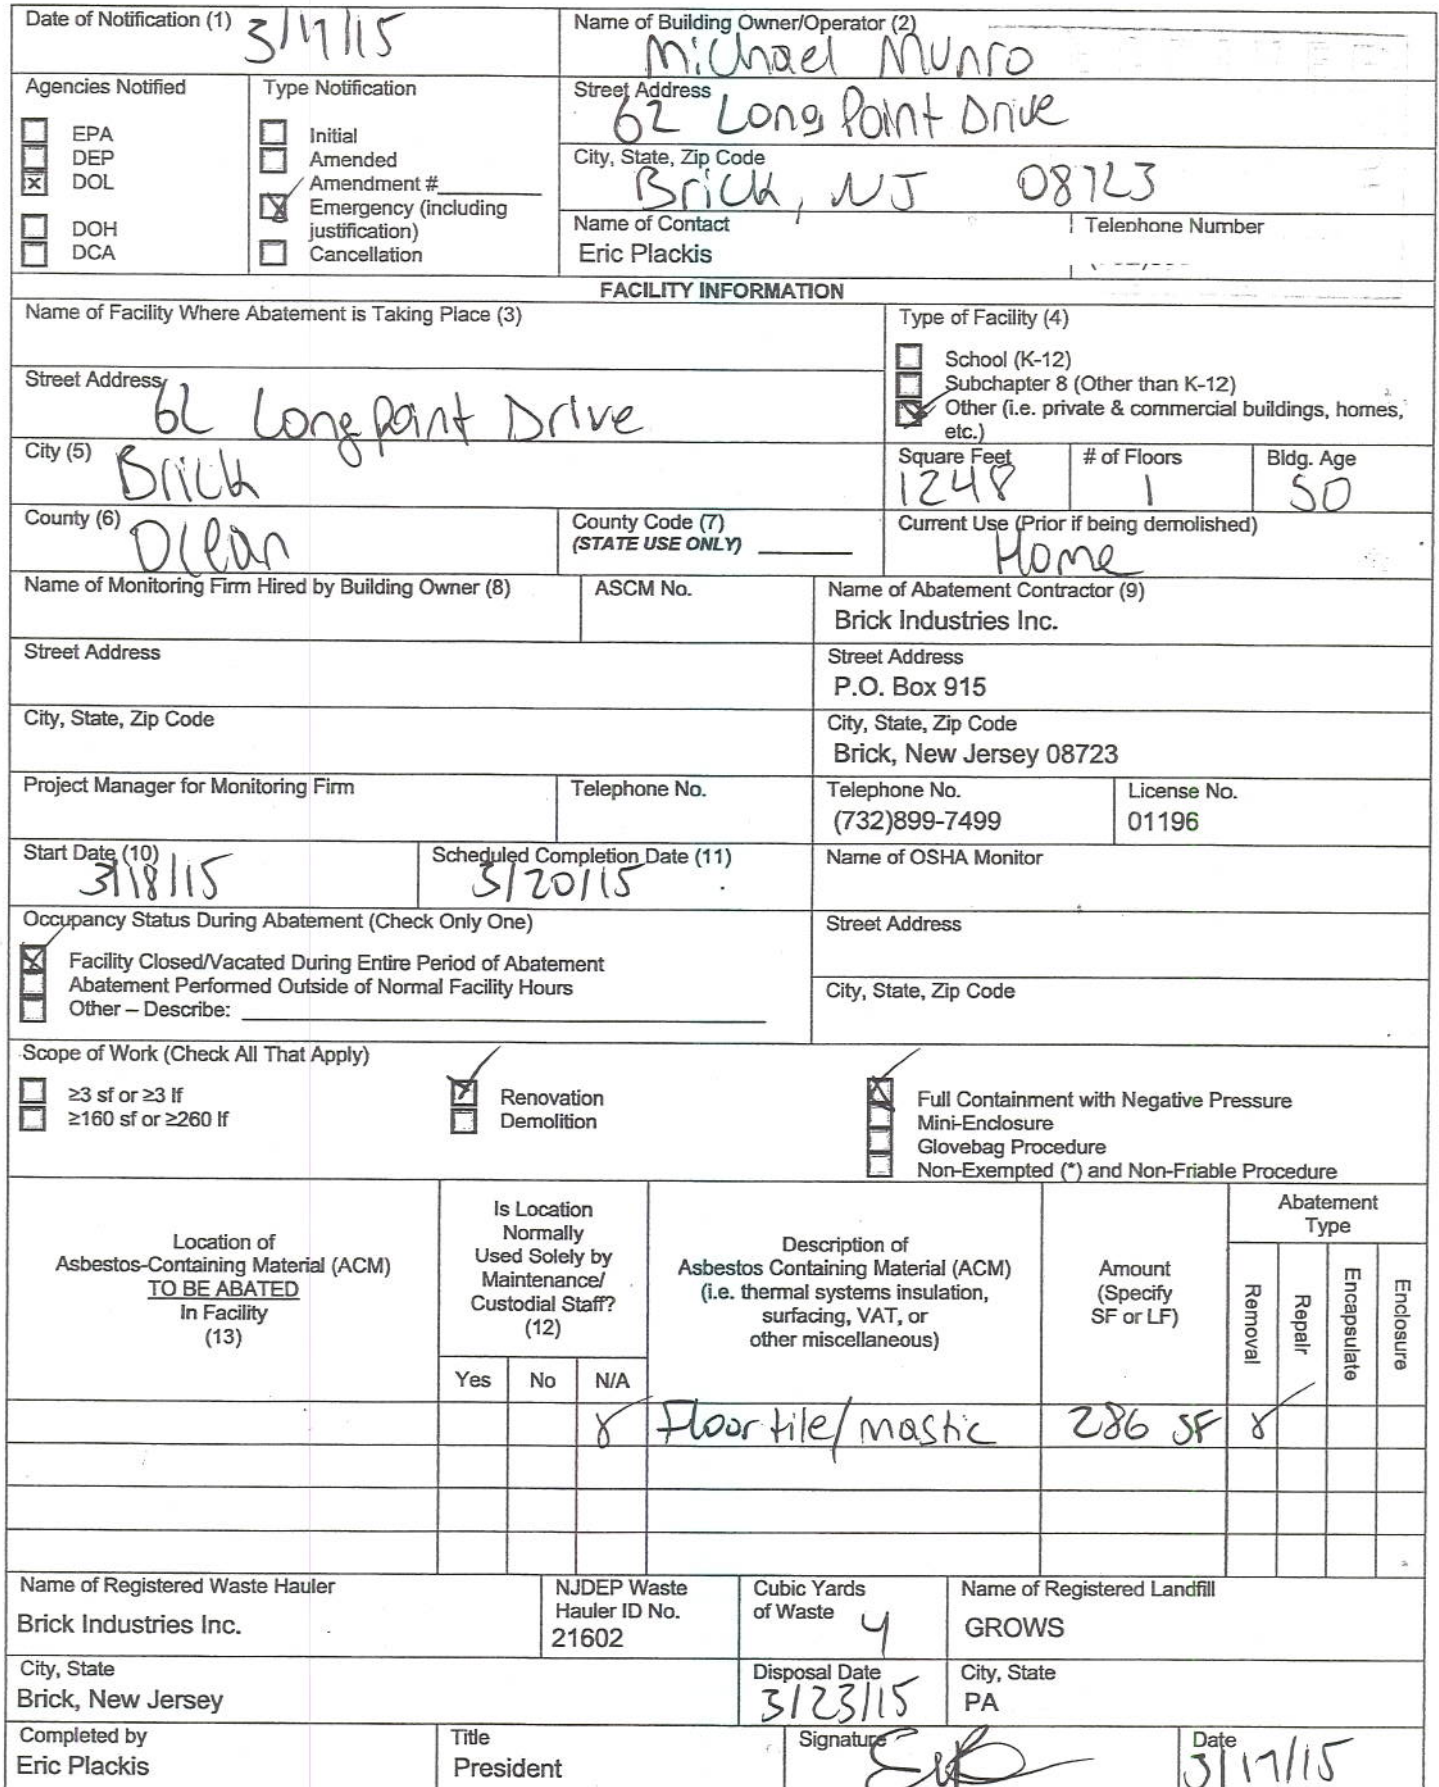 Date of Notification (1) 3/17/15
Name of Building Owner/Operator (2)
Michael Munro
Agencies Notified
EPA
DEP
DOL
DOH
DCA
Type Notification
Initial
Amended
Amendment #
Emergency (including
justification)
Cancellation
Street Address
62 Long Point Drive
City, State, Zip Code
Brick, NJ 08723
Name of Contact
Eric Plackis
Telephone Number
FACILITY INFORMATION
Name of Facility Where Abatement is Taking Place (3)
Street Address
62 Long Point Drive
Type of Facility (4)
School (K-12)
Subchapter 8 (Other than K-12)
Other (i.e. private & commercial buildings, homes,
etc.)
City (5) Brick
Square Feet
1248
# of Floors
1
Bldg. Age
50
County (6) Ocean
County Code (7)
(STATE USE ONLY)
Current Use (Prior if being demolished)
Home
Name of Monitoring Firm Hired by Building Owner (8)
ASCM No.
Name of Abatement Contractor (9)
Brick Industries Inc.
Street Address
Street Address
P.O. Box 915
City, State, Zip Code
City, State, Zip Code
Brick, New Jersey 08723
Project Manager for Monitoring Firm
Telephone No.
Telephone No.
(732)899-7499
License No.
01196
Start Date (10)
3/18/15
Scheduled Completion Date (11)
3/20/15
Name of OSHA Monitor
Occupancy Status During Abatement (Check Only One)
Facility Closed/Vacated During Entire Period of Abatement
Abatement Performed Outside of Normal Facility Hours
Other – Describe:
Street Address
City, State, Zip Code
Scope of Work (Check All That Apply)
≥3 sf or ≥3 lf
≥160 sf or ≥260 lf
Renovation
Demolition
Full Containment with Negative Pressure
Mini-Enclosure
Glovebag Procedure
Non-Exempted (*) and Non-Friable Procedure
Location of
Asbestos-Containing Material (ACM)
TO BE ABATED
In Facility
(13)
Is Location
Normally
Used Solely by
Maintenance/
Custodial Staff?
(12)
Yes No N/A
Description of
Asbestos Containing Material (ACM)
(i.e. thermal systems insulation,
surfacing, VAT, or
other miscellaneous)
Amount
(Specify
SF or LF)
Abatement
Type
Removal
Repair
Encapsulate
Enclosure
Floor tile/mastic 286 SF
Name of Registered Waste Hauler
Brick Industries Inc.
NJDEP Waste
Hauler ID No.
21602
Cubic Yards
of Waste 4
Name of Registered Landfill
GROWS
City, State
Brick, New Jersey
Disposal Date
3/23/15
City, State
PA
Completed by
Eric Plackis
Title
President
Signature
Date
3/17/15